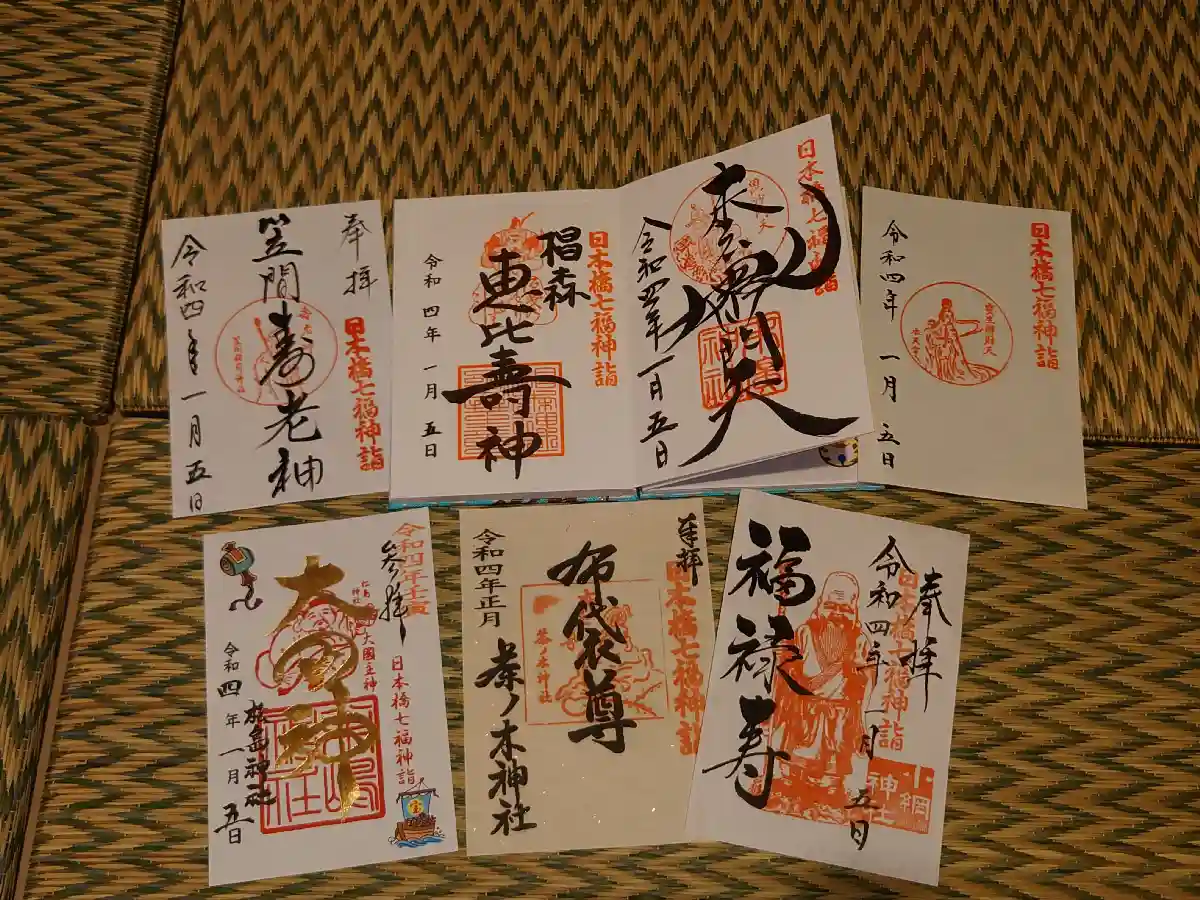 奉拝
日本橋七福神詣
笠間寿老神
令和四年一月五日
日本橋七福神詣
椙森
恵比壽神
令和四年一月五日
日本橋七福神詣
毘沙門天
令和四年一月五日
日本橋七福神詣
令和四年一月五日
令和四年壬寅
参拝
日本橋七福神詣
大國主神
大国神
松島神社
令和四年一月五日
奉拝
日本橋七福神詣
布袋尊
茶ノ木神社
茶ノ木神社
令和四年正月
奉拝
日本橋七福神詣
小網
神社
令和四年一月五日
福禄寿